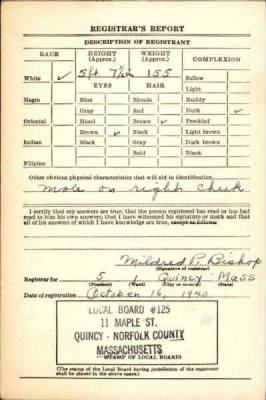 REGISTRAR'S REPORT
DESCRIPTION OF REGISTRANT
RACE HEIGHT (Approx.) WEIGHT (Approx.) COMPLEXION
White ✓ 5ft. 7½in 155 Sallow
EYES HAIR Light
Negro Blue Blonde Ruddy
Gray Red Dark ✓
Oriental Hazel Brown ✓ Freckled
Brown ✓ Black Light brown
Indian Black Gray Dark brown
Bald Black
Filipino
Other obvious physical characteristics that will aid in identification
Mole on right cheek
I certify that my answers are true; that the person registered has read or has had
read to him his own answers; that I have witnessed his signature or mark and that
all of his answers of which I have knowledge are true, except as follows:
Mildred P. Bishop
(Signature of registrar)
Registrar for 5 Quincy Mass
(Precinct) (Ward) (City or county) (State)
Date of registration October 16, 1940
LOCAL BOARD #125
11 MAPLE ST.
QUINCY - NORFOLK COUNTY
MASSACHUSETTS
(STAMP OF LOCAL BOARD)
(The stamp of the Local Board having jurisdiction of the registrant
shall be placed in the above space.)